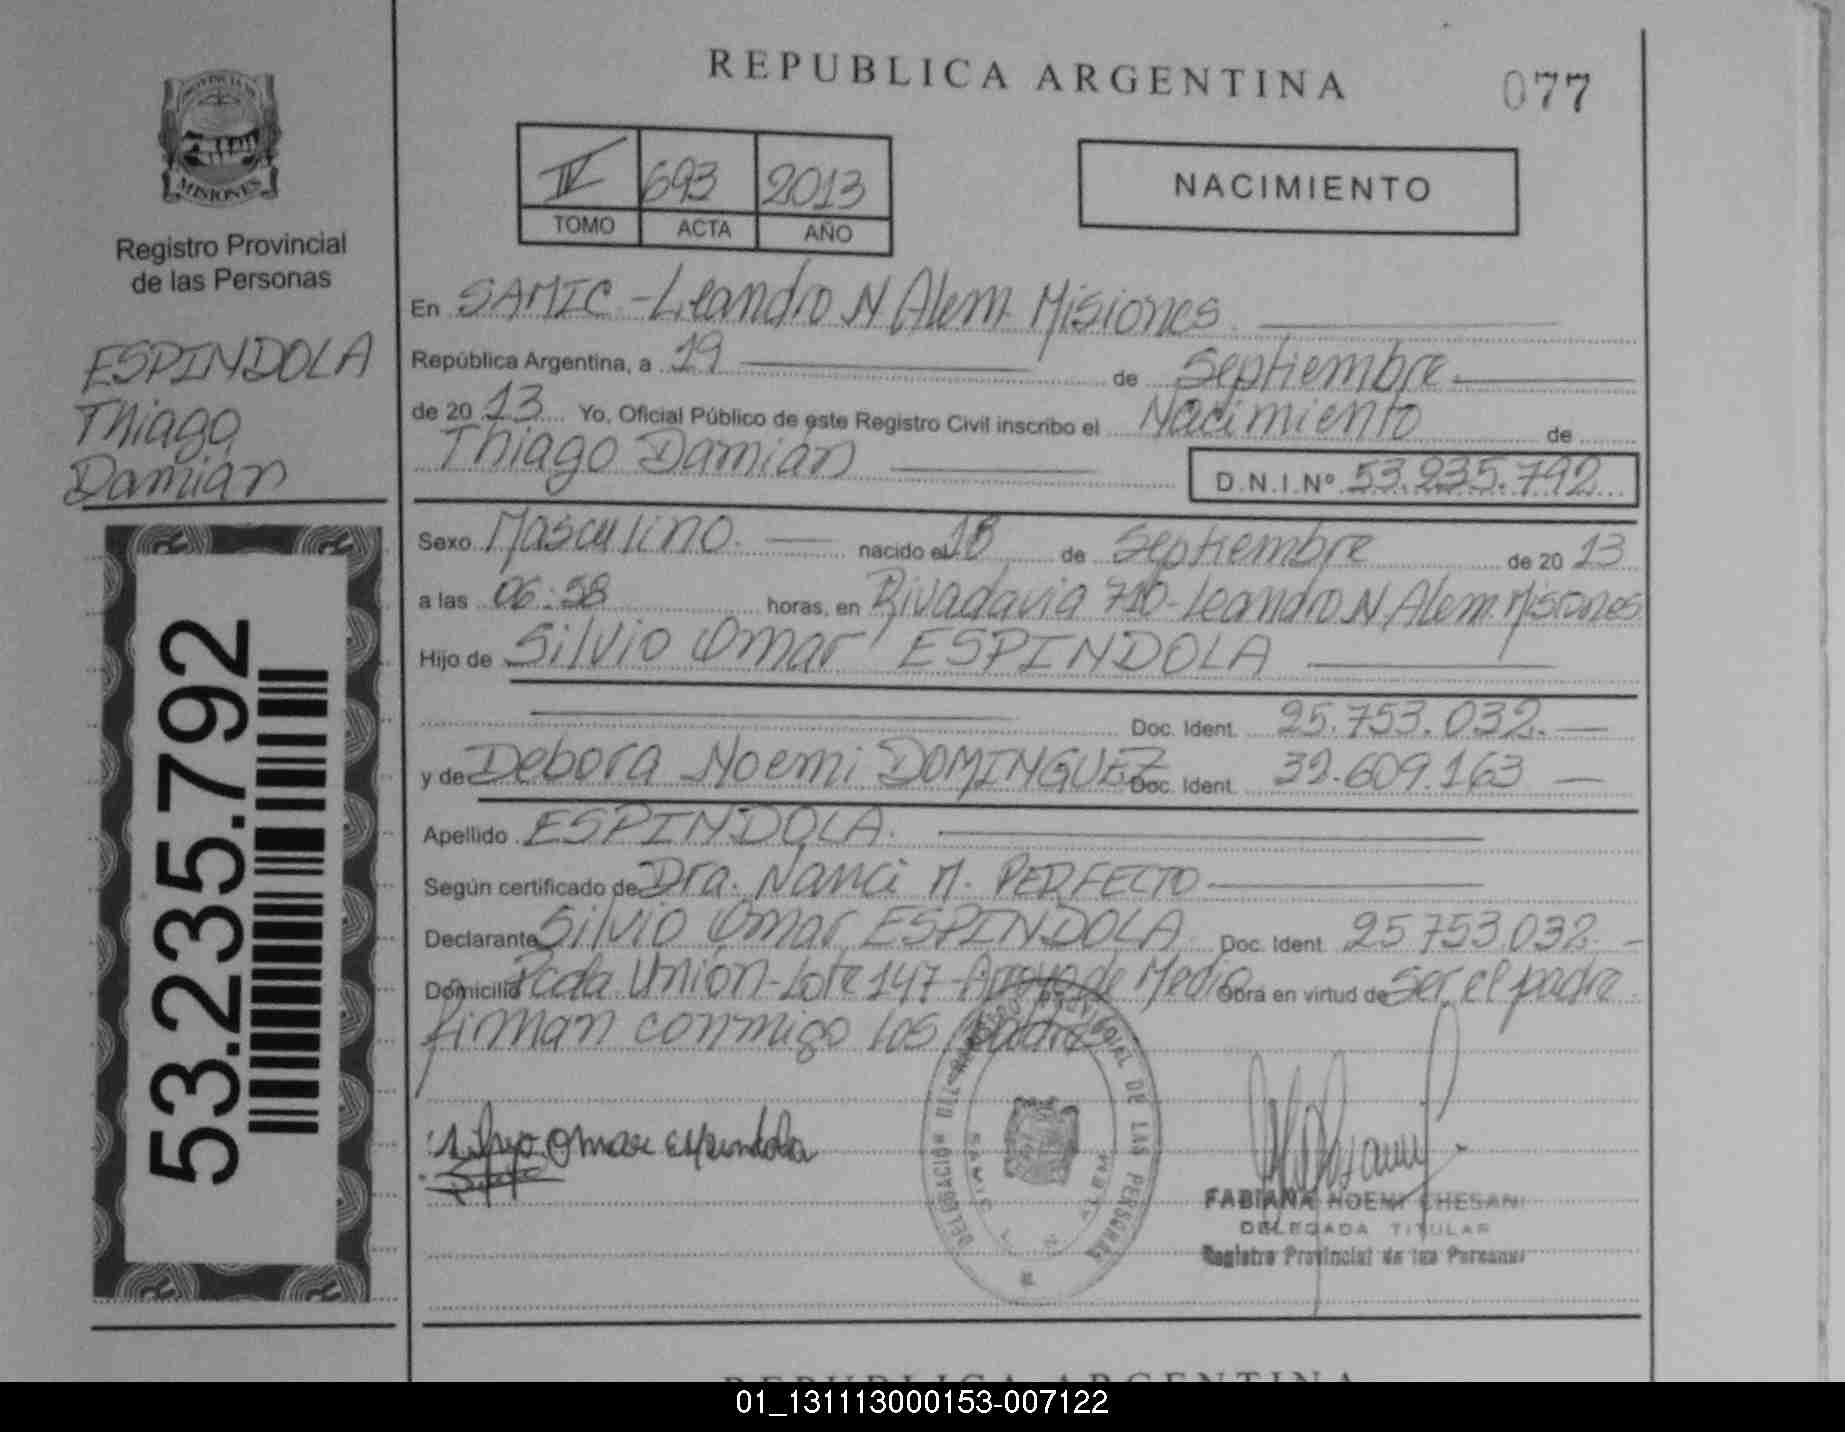 REPUBLICA ARGENTINA
077
PROVINCIA DE MISIONES
Registro Provincial
de las Personas
ESPINDOLA
Thiago
Damian
53.235.792
IV 693 2013
TOMO ACTA AÑO
NACIMIENTO
En SAMIC - Leandro N Alem Misiones
República Argentina, a 19 de Septiembre
de 20 13 Yo, Oficial Público de este Registro Civil inscribo el Nacimiento de
Thiago Damián D.N.I.Nº 53.235.792
Sexo Masculino. nacido el 18 de Septiembre de 20 13
a las 06:58 horas, en Rivadavia 710 - Leandro N Alem. Misiones
Hijo de Silvio Omar ESPINDOLA
Doc. Ident. 25.753.032.
y de Debora Noemi DOMINGUEZ Doc. Ident. 32.609.163
Apellido ESPINDOLA.
Según certificado de Dra. Nanci M. PERFECTO
Declarante Silvio Omar ESPINDOLA Doc. Ident. 25753.032.
Domicilio Pcda Unión - Lote 147 - Arroyo del Medio Obra en virtud de Ser el padre
firman conmigo los padres
Silvio Omar Espindola
DELEGACION DEL REGISTRO PROVINCIAL DE LAS PERSONAS
SAMIC L. N. ALEM
FABIANA NOEMI CHESANI
DELEGADA TITULAR
Registro Provincial de las Personas
REPUBLICA ARGENTINA
01_131113000153-007122